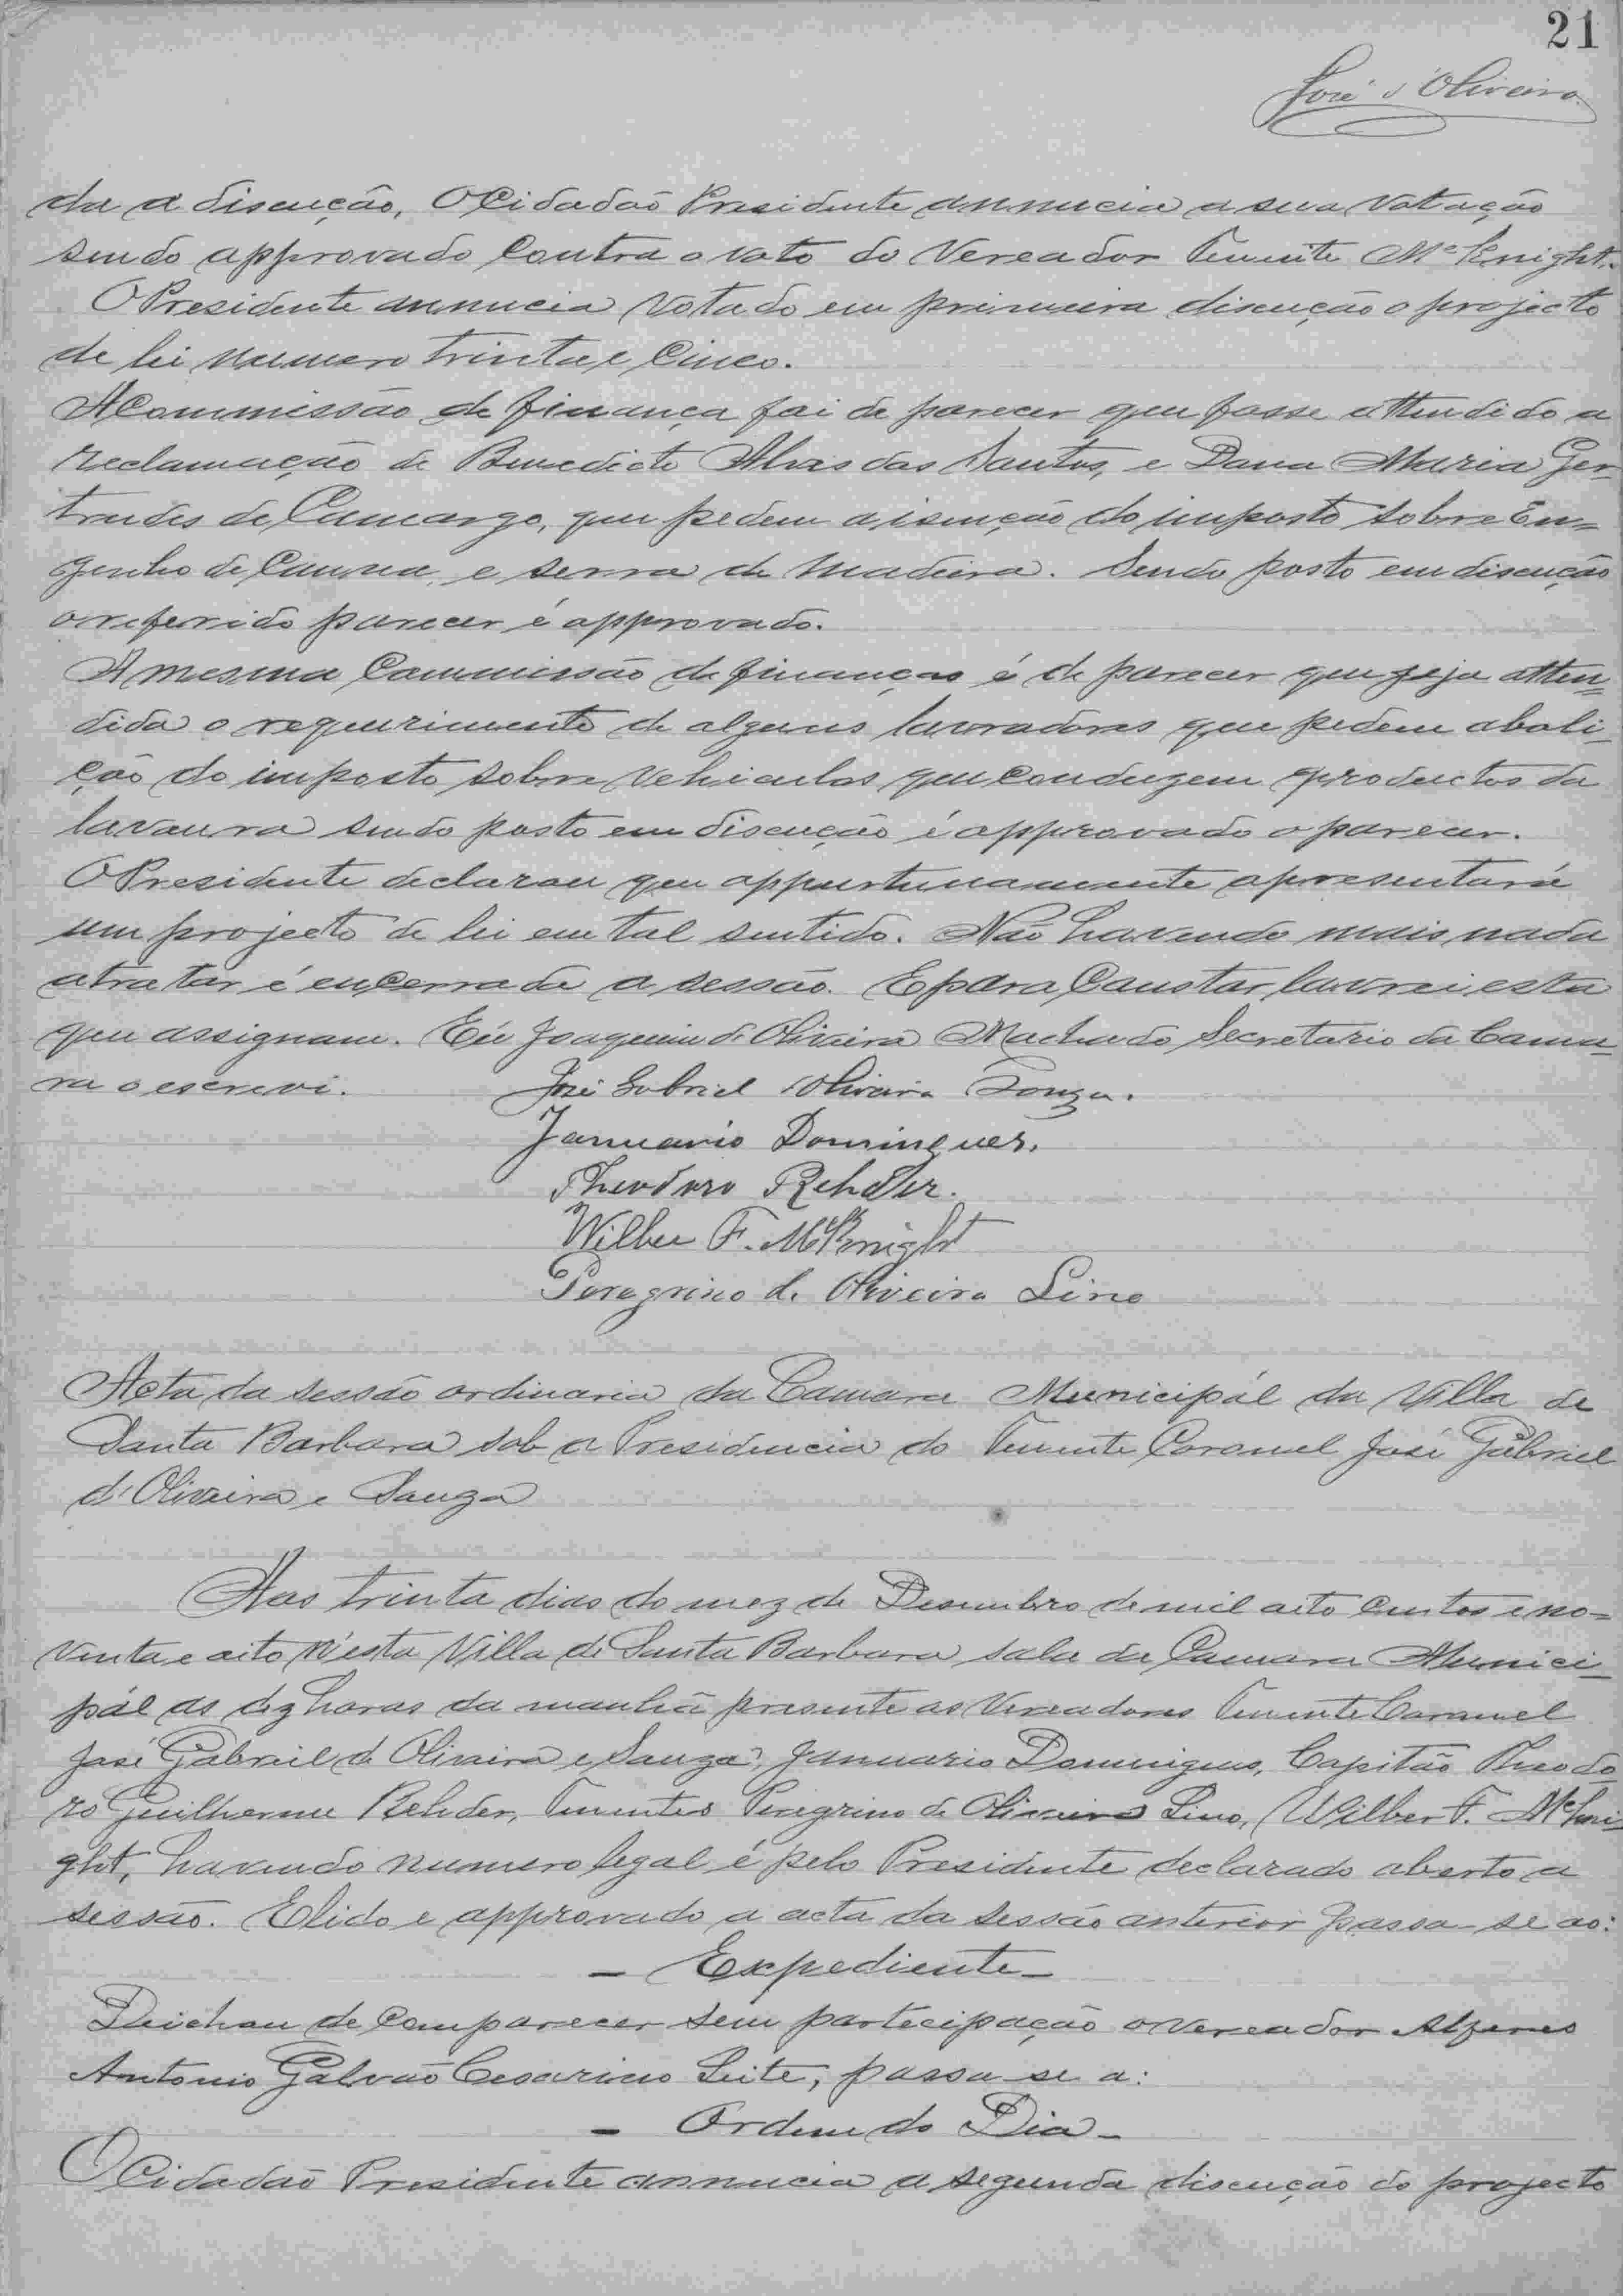 21
José d'Oliveira
da a discução, O Cidadão Presidente annucia a sua votação
sendo approvado contra o voto do Vereador Tenente Mc Knight.
O Presidente annucia votado em primeira discução o projecto
de lei numero trinta e cinco.
A Commissão de finança foi de parecer que fosse attendido a
reclamação de Benedicto Alves dos Santos, e Dona Maria Ger-
trudes de Camargo, que pedem a isenção do imposto sobre En=
genho de Canna, e serra de madeira. Sendo posto em discução
o referido parecer é approvado.
A mesma Commissão de finanças é de parecer que seja atten=
dida o requerimento de alguns lavradores que pedem aboli-
ção do imposto sobre vehiculos que conduzem productos da
lavoura sendo posto em discução é approvado o parecer.
O Presidente declarou que oppurtunamente apresentará
um projecto de lei em tal sentido. Não havendo mais nada
a tratar é encerrada a sessão. E para constar lavrei esta
que assignam. Eu Joaquim de Oliveira Machado Secretario da Cama-
ra o escrevi.
José Gabriel d'Oliveira Souza.
Januario Domingues.
Theodoro Rehder.
Wilber F. McKnight
Peregrino de Oliveira Lino
Acta da sessão ordinaria da Camara Municipál da Villa de
Santa Barbara sob a Presidencia do Tenente Coronel José Gabriel
d'Oliveira e Souza
Aos trinta dias do mez de Desembro de mil oito centos e no=
venta e oito n'esta Villa de Santa Barbara sala da Camara Munici-
pál as dez horas da manhã presente os Vereadores Tenente Coronel
José Gabriel de Oliveira e Souza, Januario Domingues, Capitão Theodo-
ro Guilherme Rehder, Tenentes Peregrino de Oliveira Lino, Wilber F. McKni-
ght, havendo numero legal, é pelo Presidente declarado aberto a
sessão. E lido e approvado a acta da sessão anterior passa-se ao:
- Expediente -
Deichou de comparecer sem partecipação o vereador Alferes
Antonio Galvão Cesarino Leite, passa-se a:
- Ordem do Dia -
O Cidadão Presidente annucia a segunda discução do projecto